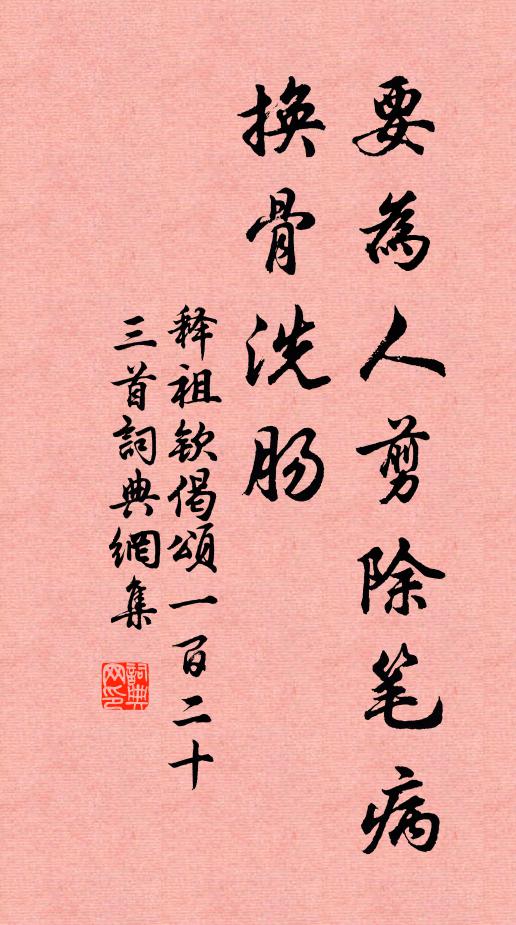 要為人剪除笔病
換骨洗肠
释祖钦偈頌一百二十
三首詞典網集
詞典网印